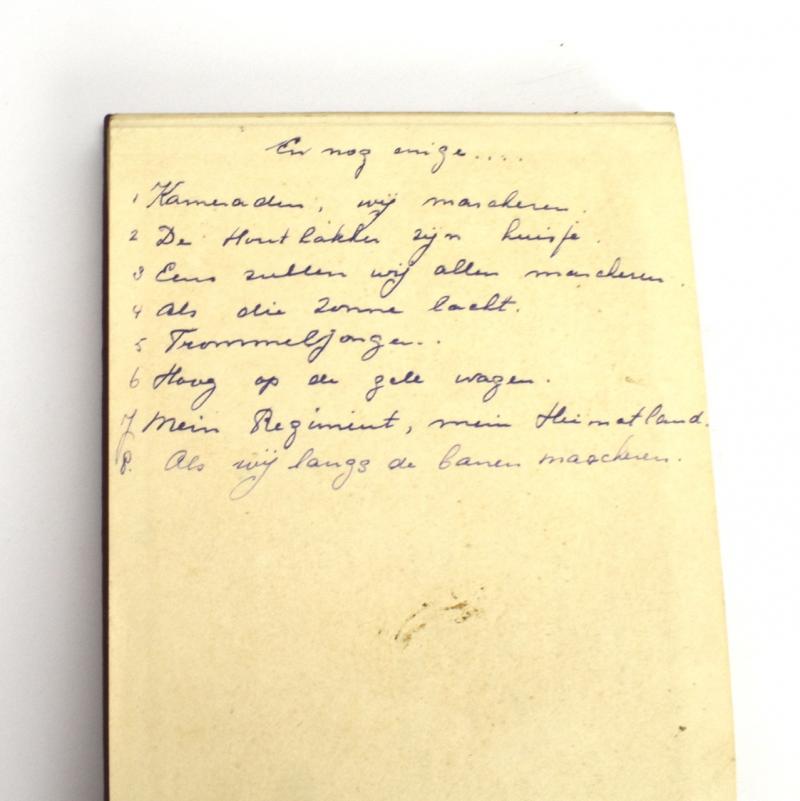 En nog enige....
1 Kameraden, wij marcheren.
2 De Houthakker zijn huisje.
3 Eens zullen wij allen marcheren.
4 Als die zonne lacht.
5 Trommeljongen..
6 Hoog op de gele wagen.
7 Mein Regiment, mein Heimatland.
8. Als wij langs de banen marcheren.